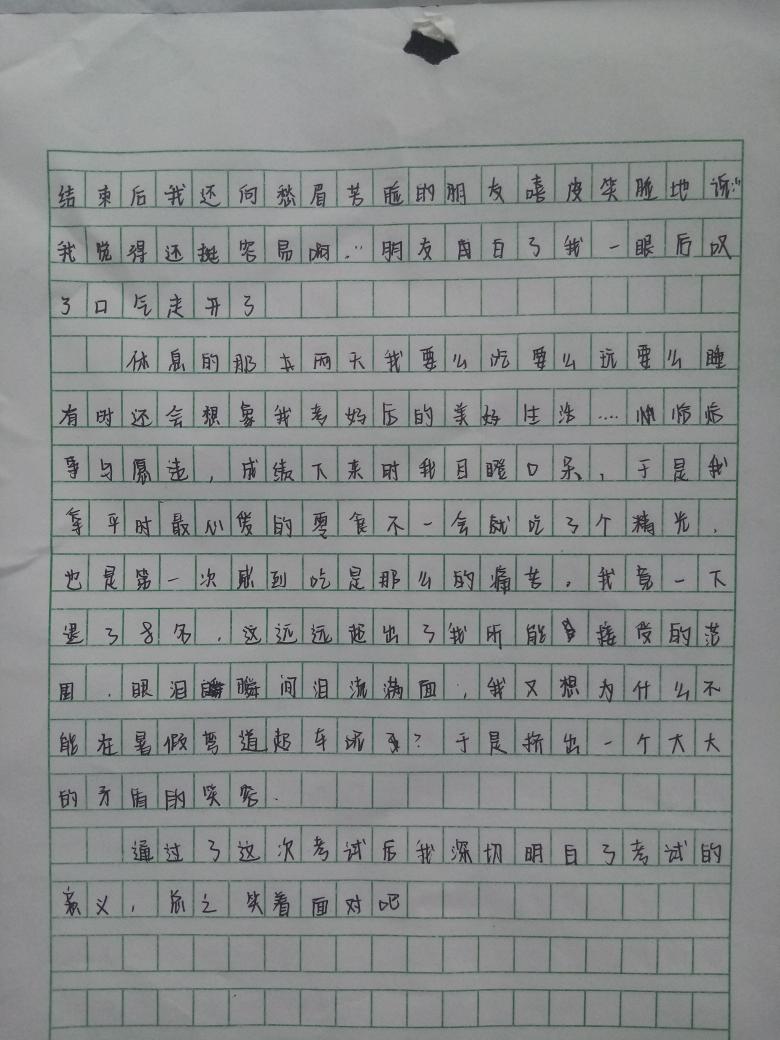 结束后我还向愁眉苦脸的朋友嘻皮笑脸地说:“
我觉得还挺容易啊.”朋友白了我一眼后叹
了口气走开了
休息的那两天我要么吃要么玩要么睡
有时还会想象我考好后的美好生活....恰恰
事与愿违,成绩下来时我目瞪口呆,于是我
拿平时最心爱的零食不一会就吃了个精光,
也是第一次感到吃是那么的痛苦,我竟一下
退了8名,这远远超出了我所能接受的范
围,眼泪瞬间泪流满面,我又想为什么不
能在暑假弯道超车呢?于是挤出一个大大
的矛盾的笑容.
通过了这次考试后我深切明白了考试的
意义,总之笑着面对吧